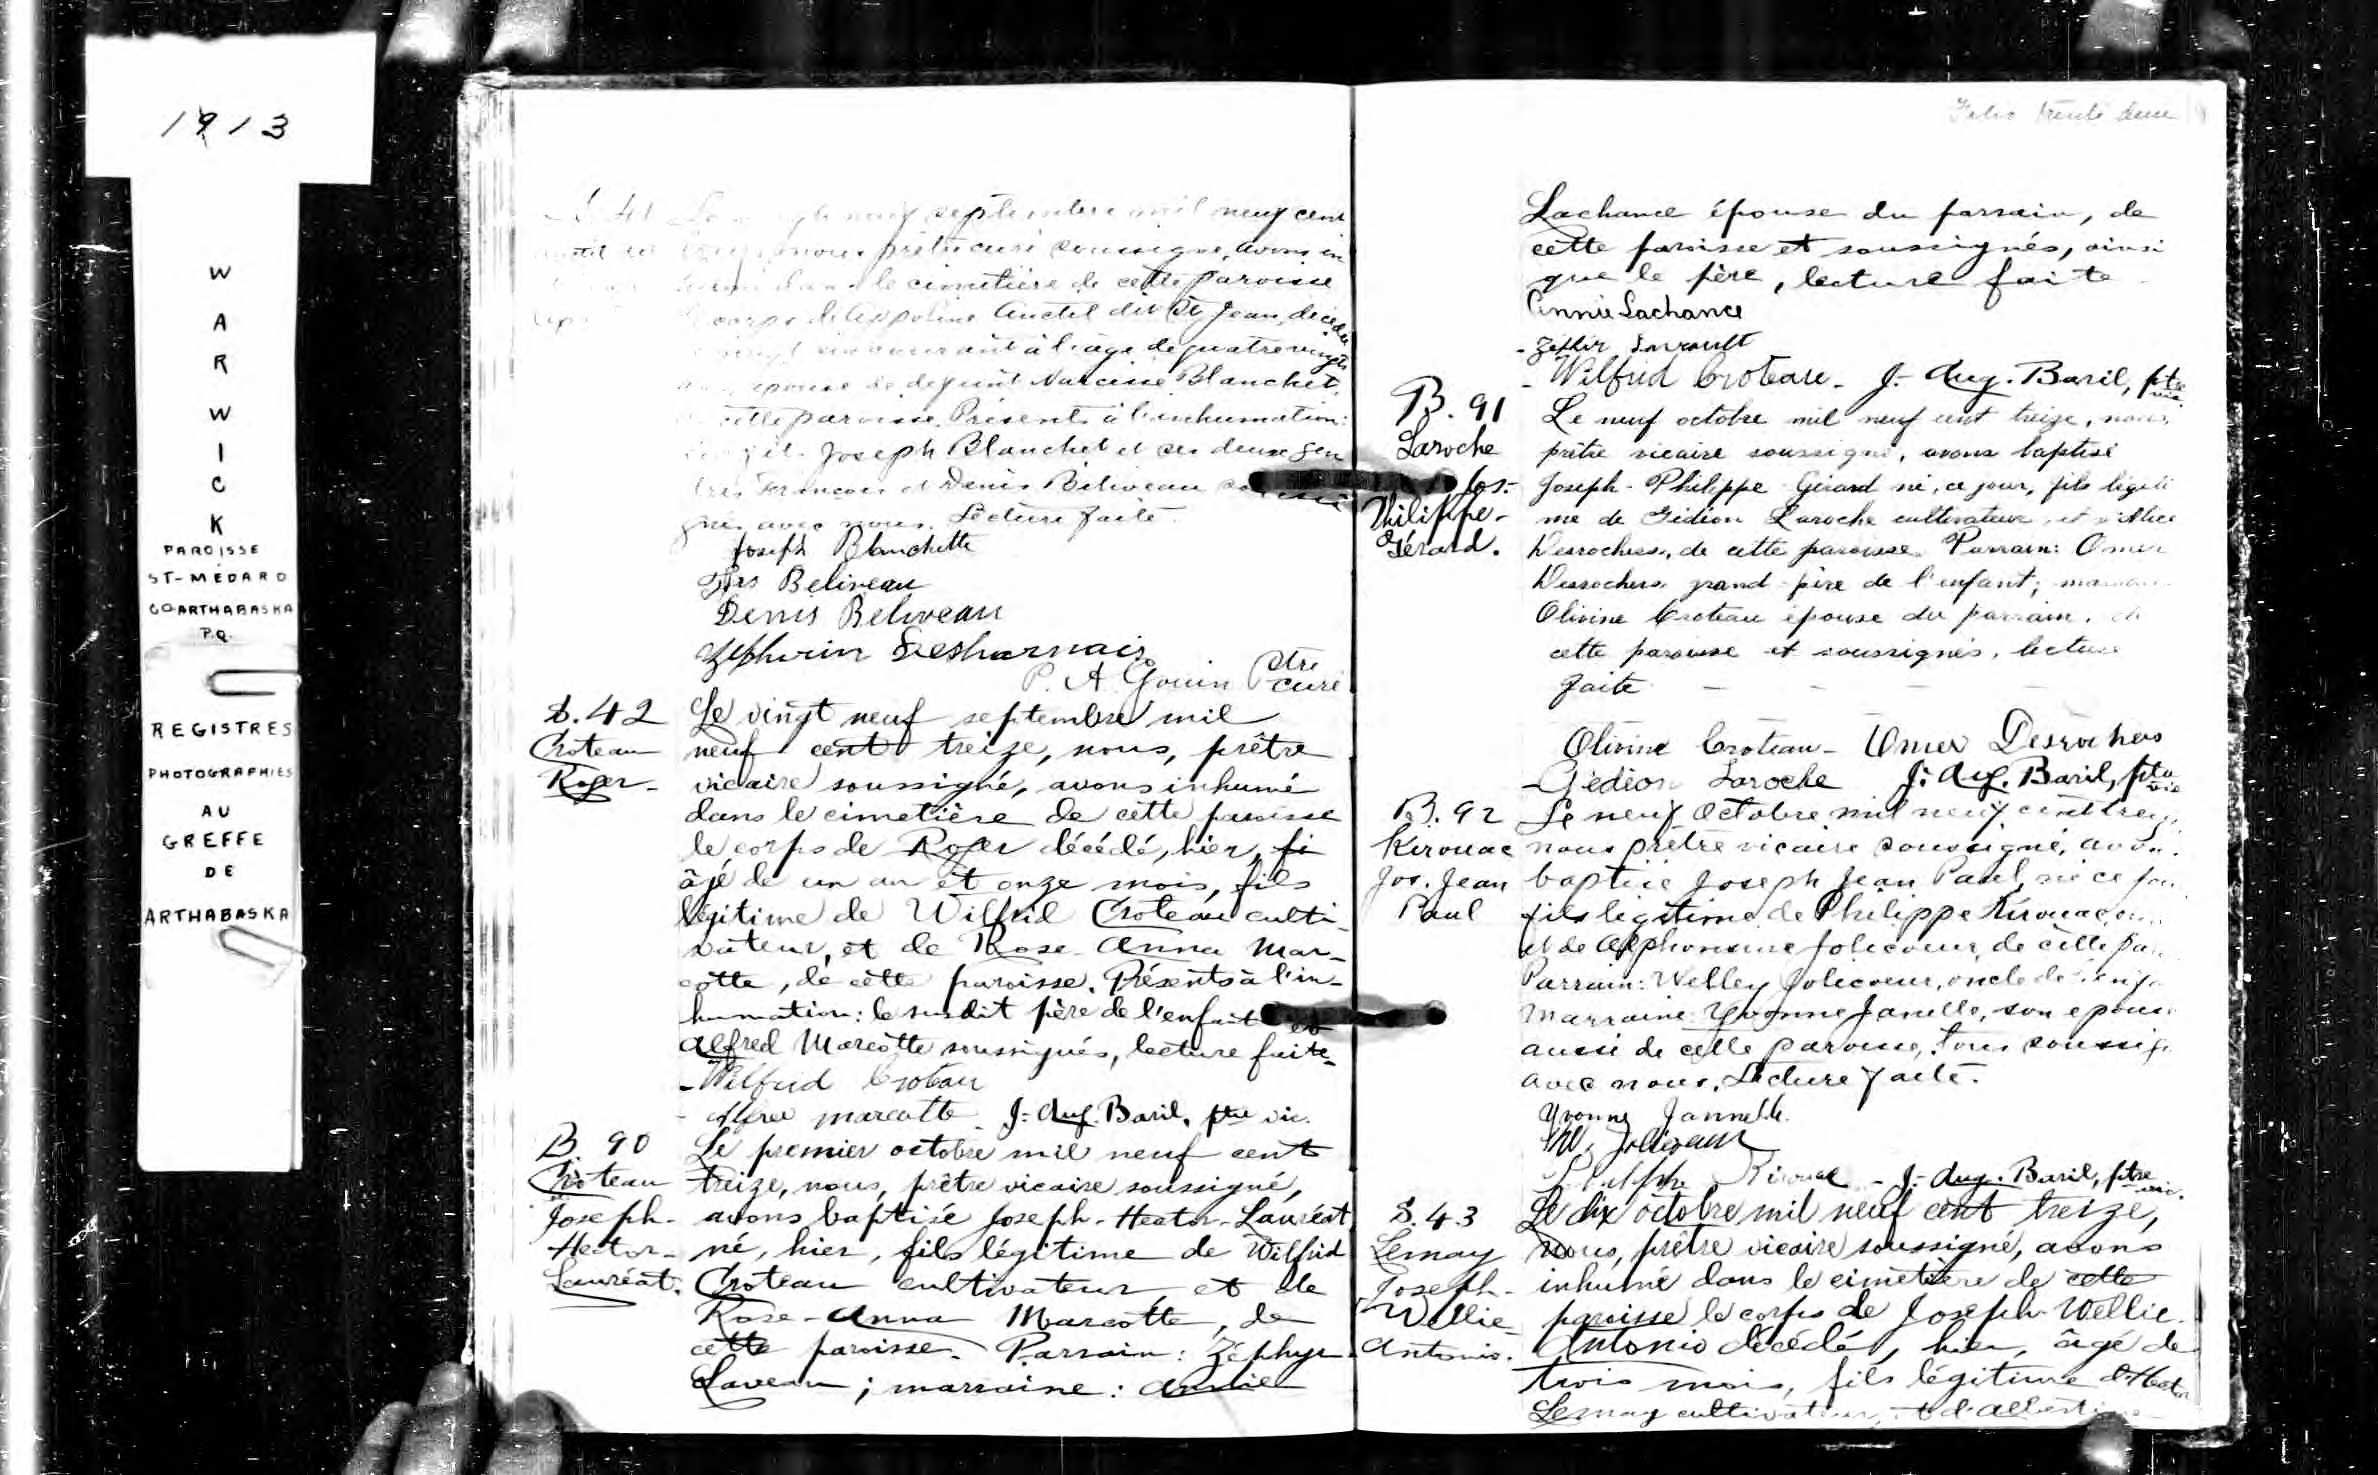 1913
W
A
R
W
I
C
K
PAROISSE
ST-MÉDARD
CO ARTHABASKA
P.Q.
REGISTRES
PHOTOGRAPHIES
AU
GREFFE
DE
ARTHABASKA
S. 41
neuf septembre mil neuf cent
nous prêtre curé soussigné, avons in
dans le cimetière de cette paroisse
corps de Appoline Auctil dit St Jean, décédée
à l'âge de quatre vingts
épouse de défunt Narcisse Blanchet,
cette paroisse. Présents à l'inhumation:
Joseph Blanchet et ses deux gen
dres François et Denis Béliveau
gnés avec nous. Lecture faite.
Joseph Blanchette
Frs Béliveau
Denis Béliveau
Zéphirin Desharnais
P. A. Gouin Ptre
curé
S. 42
Croteau
Roger-
Le vingt neuf septembre mil
neuf cent treize, nous, prêtre
vicaire soussigné, avons inhumé
dans le cimetière de cette paroisse
le corps de Roger décédé, hier, fi
âgé de un an et onze mois, fils
légitime de Wilfrid Croteau culti-
vateur, et de Rose-Anna Mar-
cotte, de cette paroisse. Présents à l'in-
humation: le susdit père de l'enfant et
Alfred Marcotte soussignés, lecture faite-
-Wilfrid Croteau
- Alfred marcotte J.- Aug. Baril, ptre vic.
B. 90
Croteau
Joseph-
Hector-
Lauréat.
Le premier octobre mil neuf cent
treize, nous, prêtre vicaire soussigné,
avons baptisé Joseph-Hector-Lauréat
né, hier, fils légitime de Wilfrid
Croteau cultivateur et de
Rose-Anna Marcotte, de
cette paroisse. Parrain: Zéphyr
Laveau; marraine: Annie
Folio trente deux
Lachance épouse du parrain, de
cette paroisse et soussignés, ainsi
que le père, lecture faite
Annie Lachance
- Zéphir
- Wilfrid Croteau- J.- Aug. Baril, ptre
vic.
B. 91
Laroche
Jos.-
Philippe-
Gérard.
Le neuf octobre mil neuf cent treize, nous,
prêtre vicaire soussigné, avons baptisé
Joseph-Philippe-Gérard né, ce jour, fils légiti
me de Gédéon Laroche cultivateur, et d'Alice
Desrochers, de cette paroisse. Parrain: Omer
Desrochers grand-père de l'enfant;
Olivine Croteau épouse du parrain,
cette paroisse et soussignés, lecture
faite - - - -
Olivine Croteau- Omer Desrochers
-Gédéon Laroche J.- Aug. Baril, ptre
vic
B. 92
Kirouac
Jos. Jean
Paul
Le neuf Octobre mil neuf cent
nous prêtre vicaire soussigné,
baptisé Joseph Jean Paul, né ce
fils légitime de Philippe Kirouac
et de Alphonsine Jolicoeur, de cette
Parrain: Welley Jolicoeur, oncle de
Marraine: Yvonne Janelle, son épouse
aussi de cette paroisse, tous
avec nous. Lecture faite.
Yvonne Jannelle.
W. Jolicoeur
Philippe Kirouac - J.- Aug. Baril, ptre
vic.
S. 43
Lemay
Joseph-
Wellie-
Antonio.
Le dix octobre mil neuf cent treize,
nous, prêtre vicaire soussigné, avons
inhumé dans le cimetière de cette
paroisse le corps de Joseph-Wellie-
Antonio décédé, hier, âgé de
trois mois, fils légitime d'Hector
Lemay cultivateur, et d'